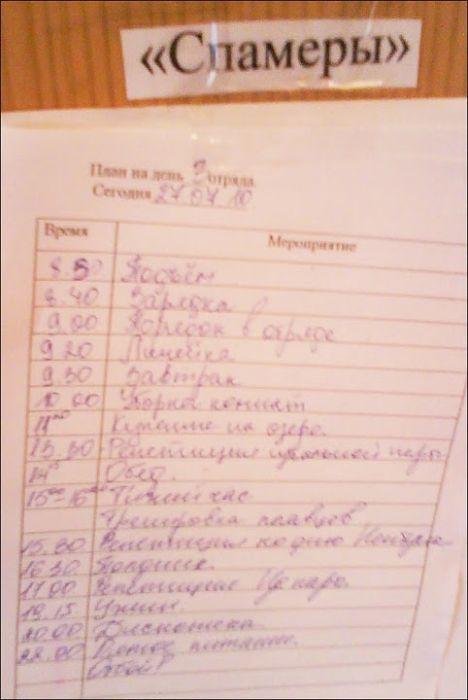 «Спамеры»
План на день 9 отряда.
Сегодня 27.07.10
Время Мероприятие
8.30 Подъём
8.40 Зарядка
9.00 Порядок в отряде
9.20 Линейка
9.30 Завтрак
10.00 Уборка комнат
11⁰⁰ Купание на озере.
13.30 Репетиция идеальной пары
14 Обед.
15⁰⁰-16⁰⁰ Тихий час
Тренировка пловцов
15.30 Репетиция ко дню Нептуна
16.30 Полдник.
17.00 Репетиция
19.15 Ужин.
20.00 Дискотека.
22.00 питание.
Отбой!